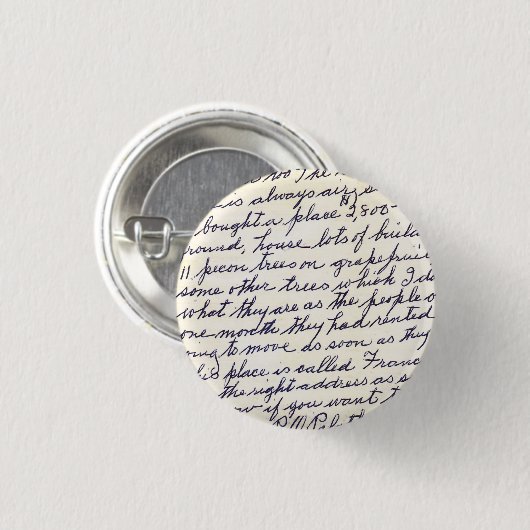 is always air
bought a place 2,800
round, house lots of build
11 pecon trees on grapefruit
some other trees which I do
what they are as the people o
one month they had rented
ing to move as soon as they
his place is called Franc
the right address as s
ow if you want t